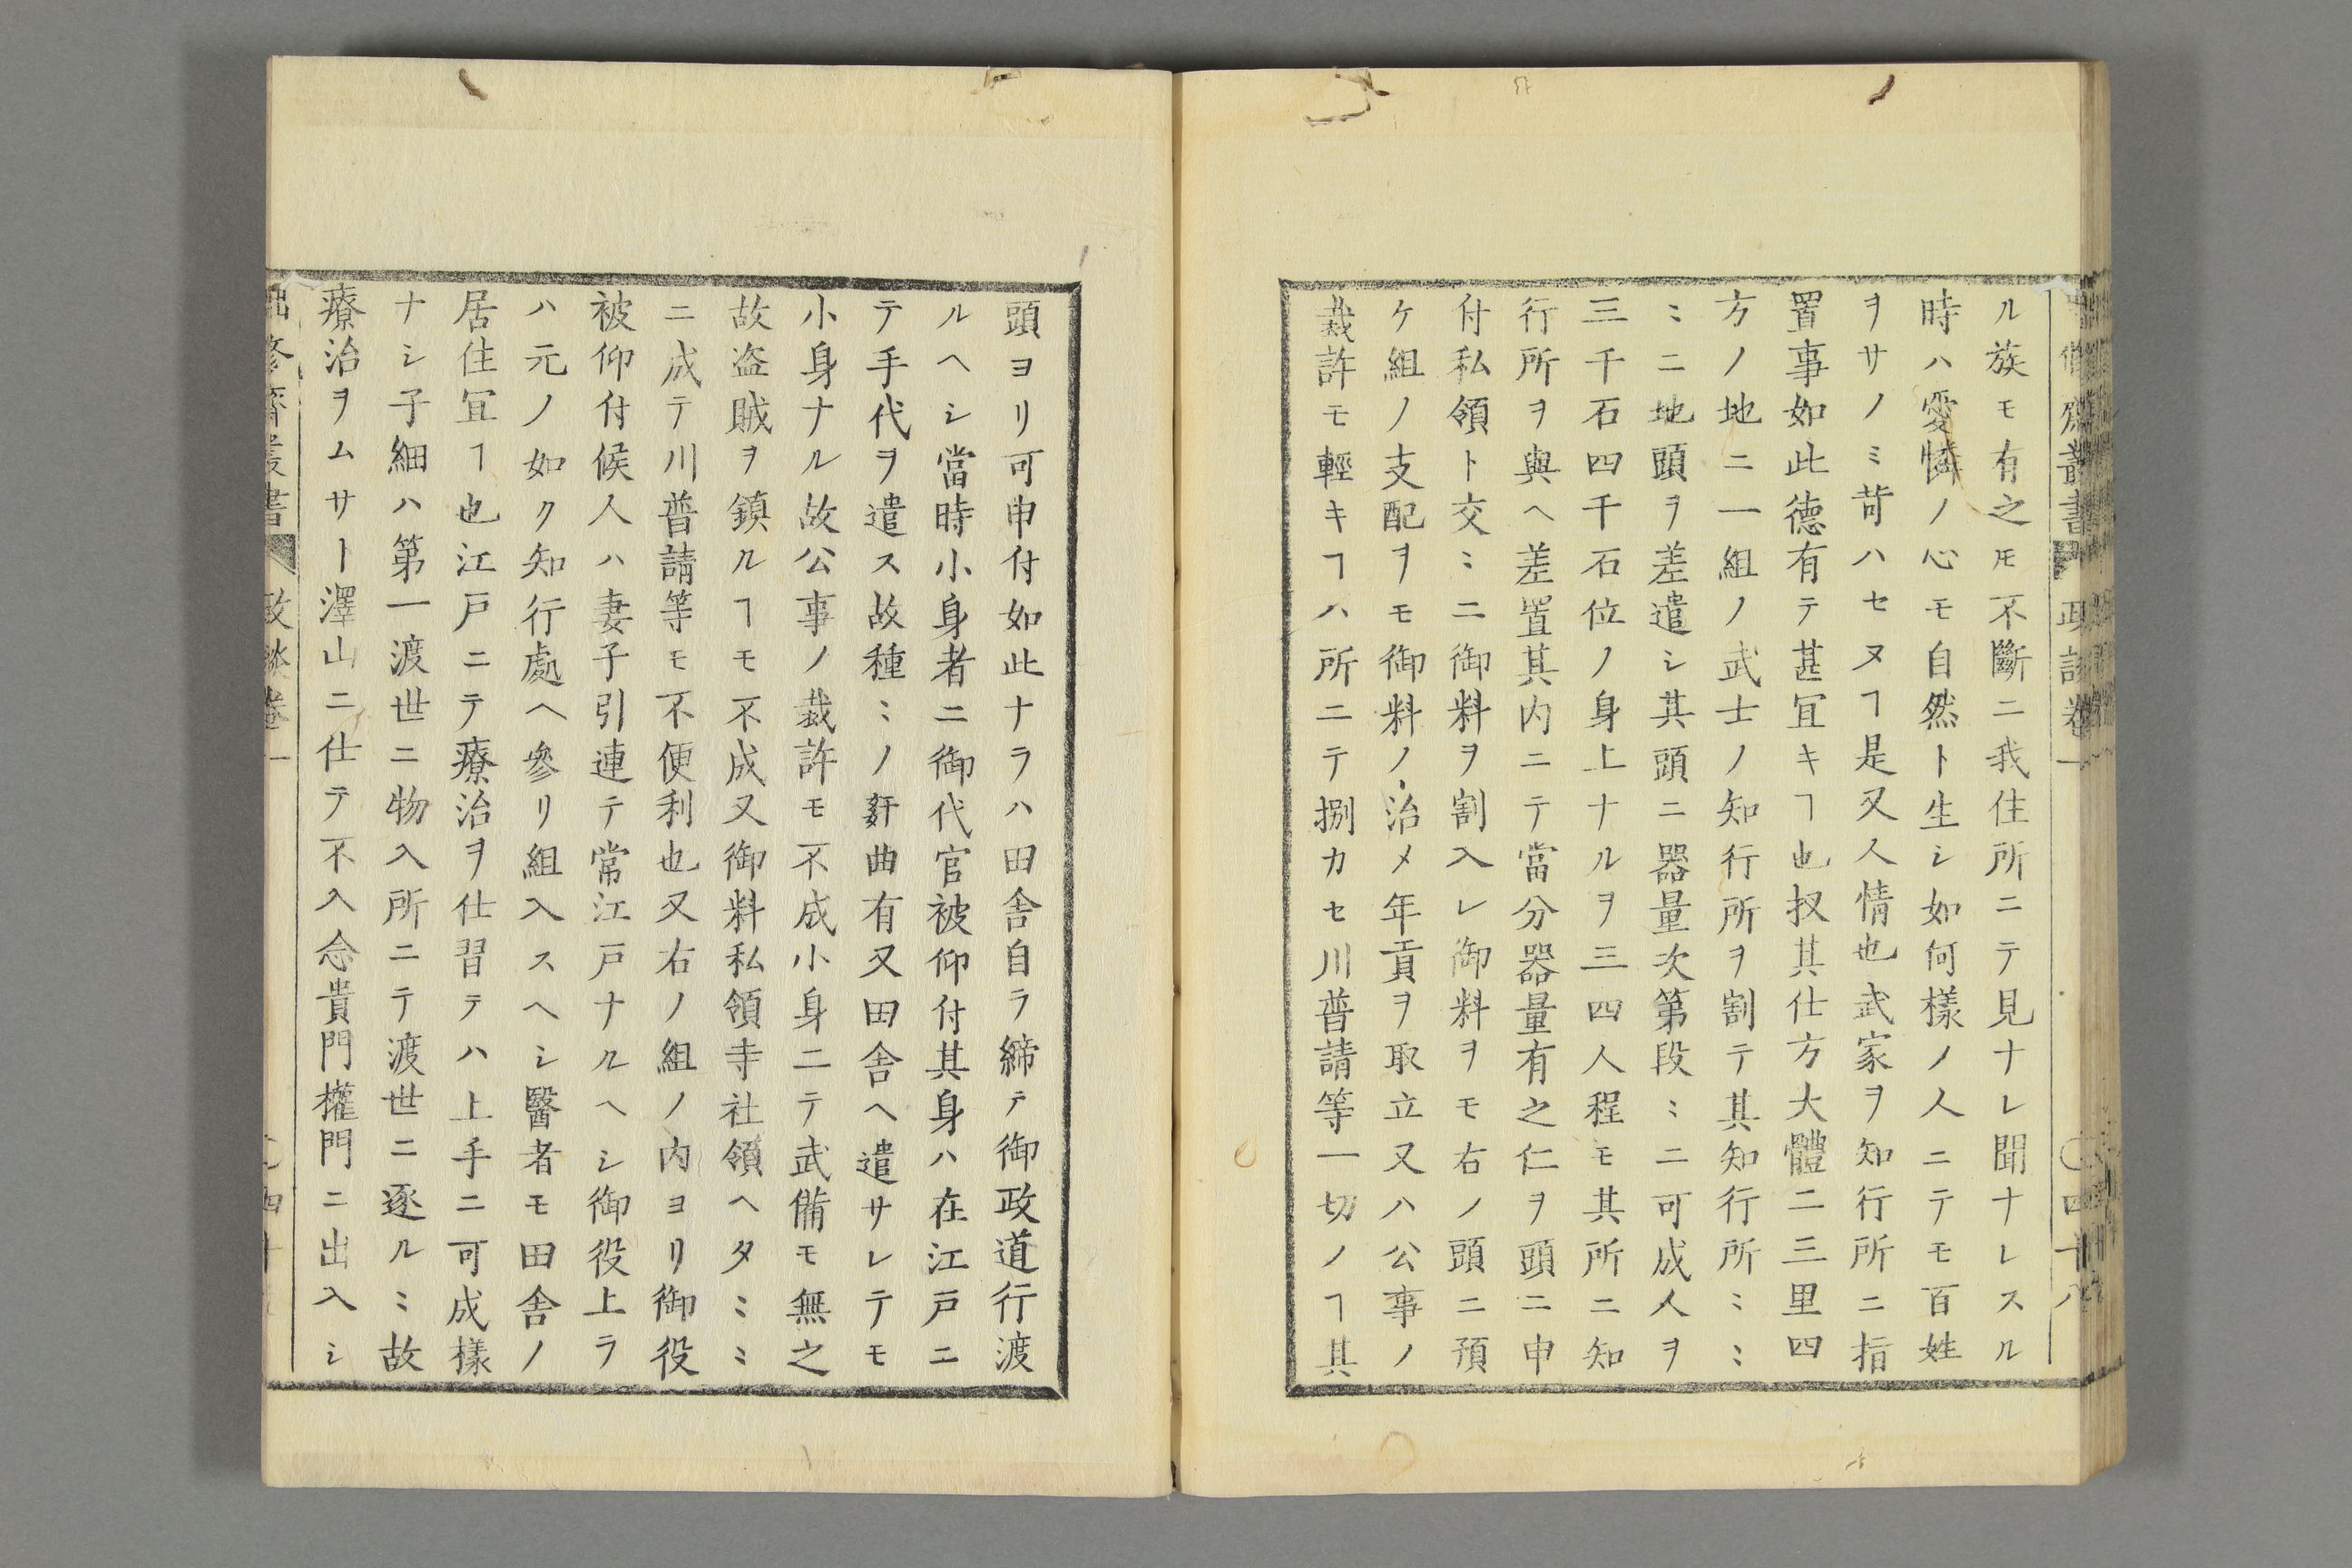 政談卷一 〇四十八
ル族モ有之𪜈不斷ニ我住所ニテ見ナレ聞ナレスル
時ハ愛憐ノ心モ自然ト生シ如何樣ノ人ニテモ百姓
ヲサノミ苛ハセヌヿ是又人情也武家ヲ知行所ニ指
置事如此德有テ甚冝キヿ也扠其仕方大體二三里四
方ノ地ニ一組ノ武士ノ知行所ヲ割テ其知行所ミミ
ミニ地頭ヲ差遣シ其頭ニ器量次第段ミニ可成人ヲ
三千石四千石位ノ身上ナルヲ三四人程モ其所ニ知
行所ヲ與ヘ差置其内ニテ當分器量有之仁ヲ頭ニ申
付私領ト交ミニ御料ヲ割入レ御料ヲモ右ノ頭ニ預
ケ組ノ支配ヲモ御料ノ治メ年貢ヲ取立又ハ公事ノ
裁許モ輕キヿハ所ニテ捌カセ川普請等一切ノヿ其
頭ヨリ可申付如此ナラハ田舎自ラ締テ御政道行渡
ルヘシ當時小身者ニ御代官被仰付其身ハ在江戸ニ
テ手代ヲ遣ス故種ミノ姧曲有又田舎ヘ遣サレテモ
小身ナル故公事ノ裁許モ不成小身ニテ武備モ無之
故盗賊ヲ鎮ルヿモ不成又御料私領寺社領ヘタミミ
ニ成テ川普請等モ不便利也又右ノ組ノ内ヨリ御役
被仰付候人ハ妻子引連テ常江戸ナルヘシ御役上ラ
ハ元ノ如ク知行處ヘ參リ組入スヘシ醫者モ田舎ノ
居住冝ヿ也江戸ニテ療治ヲ仕習テハ上手ニ可成樣
ナシ子細ハ第一渡世ニ物入所ニテ渡世ニ逐ルミ故
療治ヲムサト澤山ニ仕テ不入念貴門權門ニ出入シ
政談卷一